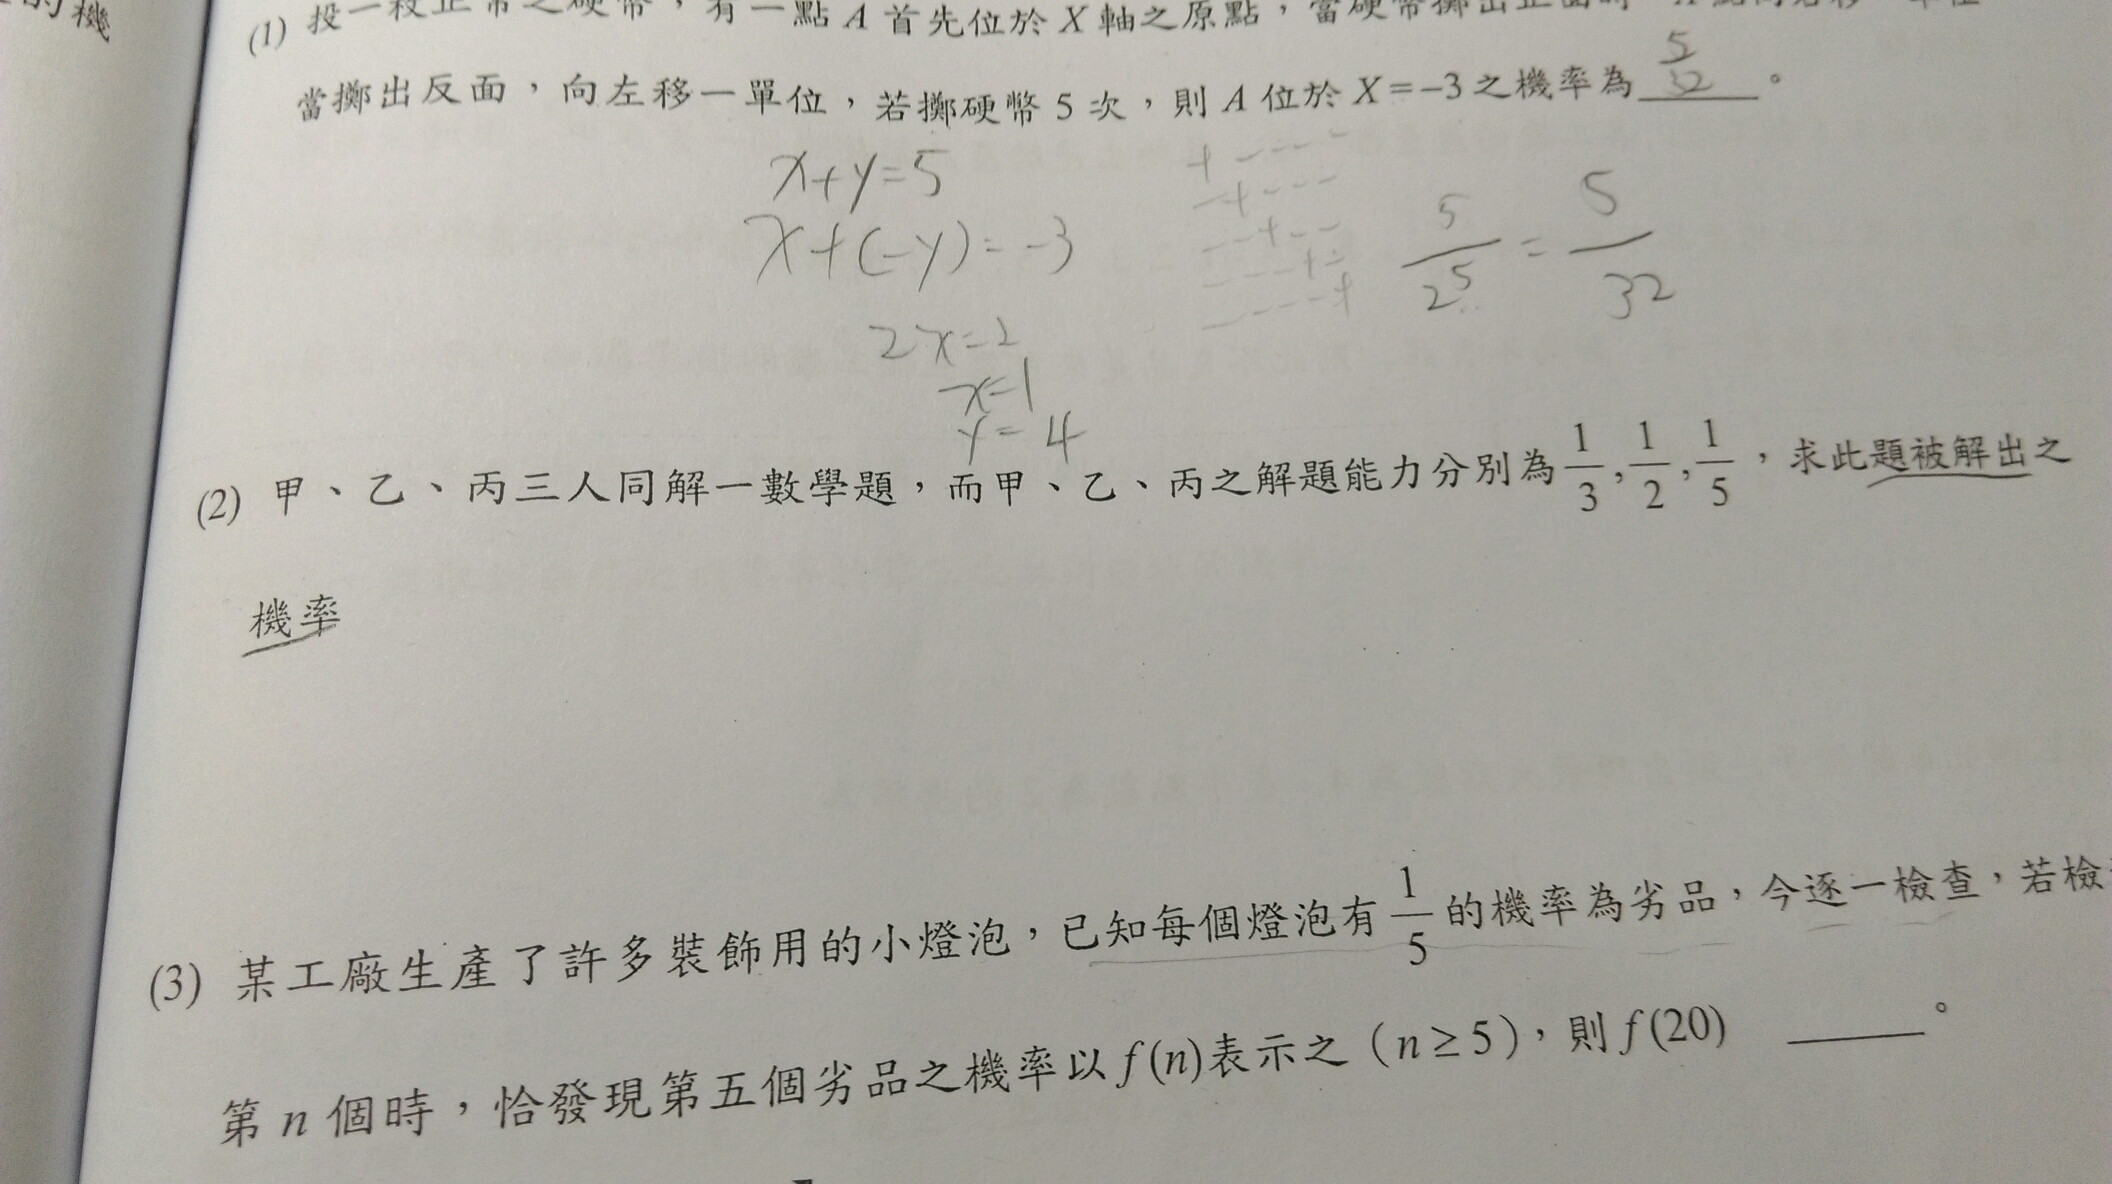 的機
(1) 投一枚正常之硬幣，有一點 A 首先位於 X 軸之原點，當硬幣擲出正面時
當擲出反面，向左移一單位，若擲硬幣 5 次，則 A 位於 X = -3 之機率為 5/32 。
x+y=5
x+(-y)=-3
2x=2
x=1
y=4
+ - - - -
- + - - -
- - + - -
- - - + -
- - - - +
5/2^5 = 5/32
(2) 甲、乙、丙三人同解一數學題，而甲、乙、丙之解題能力分別為 1/3 , 1/2 , 1/5 ，求此題被解出之
機率
(3) 某工廠生產了許多裝飾用的小燈泡，已知每個燈泡有 1/5 的機率為劣品，今逐一檢查，若檢
第 n 個時，恰發現第五個劣品之機率以 f(n)表示之（n ≥ 5），則 f(20) ＿＿＿。